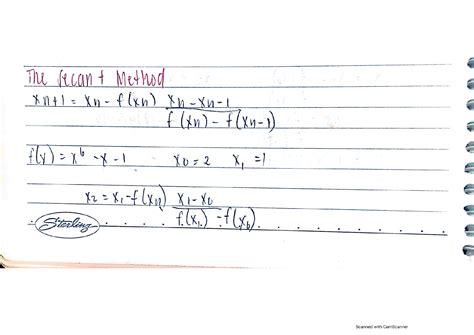 The Secant Method
xn+1 = xn - f(xn) xn - xn-1
f(xn) - f(xn-1)
f(y) = x^6 - x - 1 x0 = 2 x1 = 1
x2 = x1 - f(xn) x1 - x0
f(x1) - f(x0)
Sterling
Scanned with CamScanner